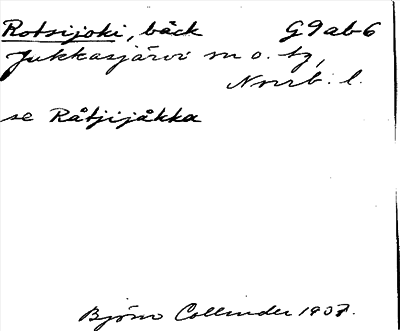 Rotsijoki, bäck G9ab-6
Jukkasjärvi sn o. tg,
Norrb. l.
se Råtjijåkka
Björn Collinder 1907.